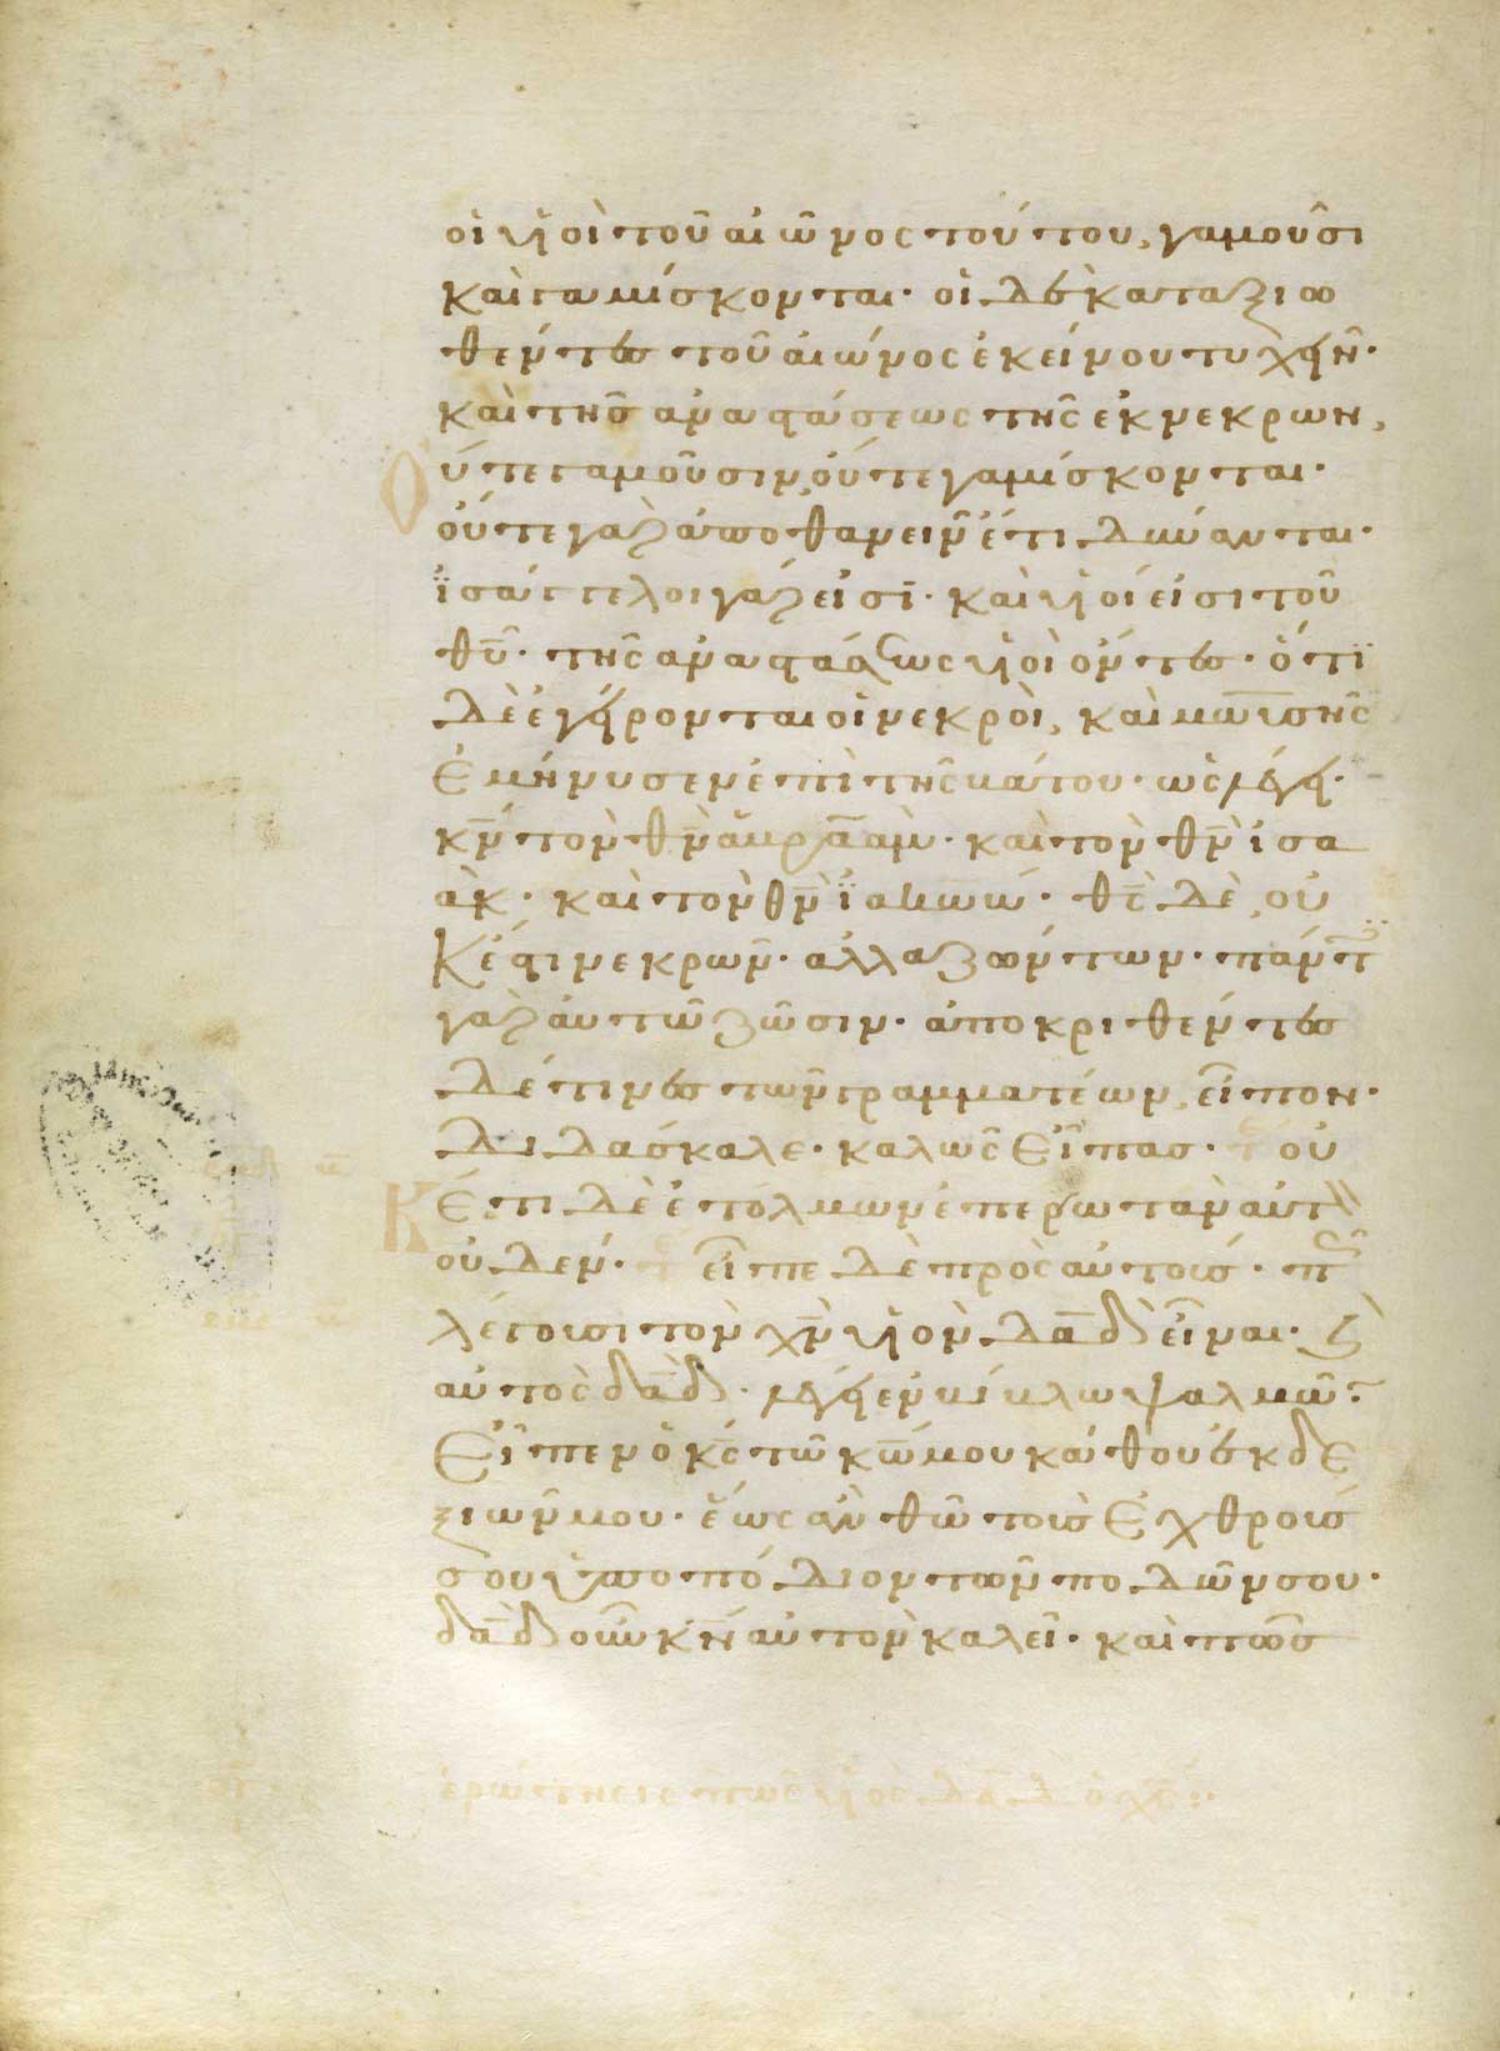 οἱ υἱοὶ τοῦ αἰῶνος τούτου, γαμοῦσι
καὶ γαμίσκονται· οἱ δὲ καταξιω
θέντες τοῦ αἰῶνος ἐκείνου τυχεῖν·
καὶ τῆς ἀναστάσεως τῆς ἐκ νεκρων,
Ούτε γαμοῦσιν, ούτε γαμίσκονται·
οὔτε γὰρ ἀποθανεῖν ἔτι δύνανται·
ϊσάγγελοι γάρ εἰσϊ· καὶ υἱοί εἰσι τοῦ
θῡ· τῆς ἀναστάσεως υἱοὶ όντες· ὅτϊ
δὲ ἐγείρονται οἱ νεκροὶ, καὶ μωϋσῆς
Ἐμήνυσεν ἐπὶ τῆς βάτου· ὡς λέγει·
κν̄ τὸν θν̄ ἀβραὰμ· καὶ τὸν θν̄ ἰσα
ὰκ· καὶ τὸν θν̄ ϊακώβ· θς̄ δὲ, οὐ
Κέστι νεκρῶν· ἀλλα ζώντων· πάντ
γὰρ ἀυτῶ ζῶσιν· ἀποκριθέντες
δέ τινες τῶν γραμματέων, εἶπον·
διδάσκαλε· καλῶς Εἶπας· οὐ
ΚἘτι δὲ ἐτόλμων ἐπερωτὰν αὐτ
οὐδέν· εἶπε δὲ πρὸς αὐτούς· π
λέγουσι τὸν χν̄ υἱὸν δᾱδ εἶναι· ϗ
αὐτὸς δᾱδ· λέγει ἐν βίβλω ψαλμῶ:
Εἶπεν ὁ κς̄ τῶ κω̄ μου κάθου ἐκ δε
ξιῶν μου· ἕως ἂν θῶ τοὺς Ἐχθρούς
σου ὑποπόδιον τῶν ποδῶν σου·
δᾱδ οὖν κν̄ αὐτὸν καλεῖ· καὶ πῶς
ἐρώτησις πῶς υἱὸς δᾱδ ὁ χς̄: